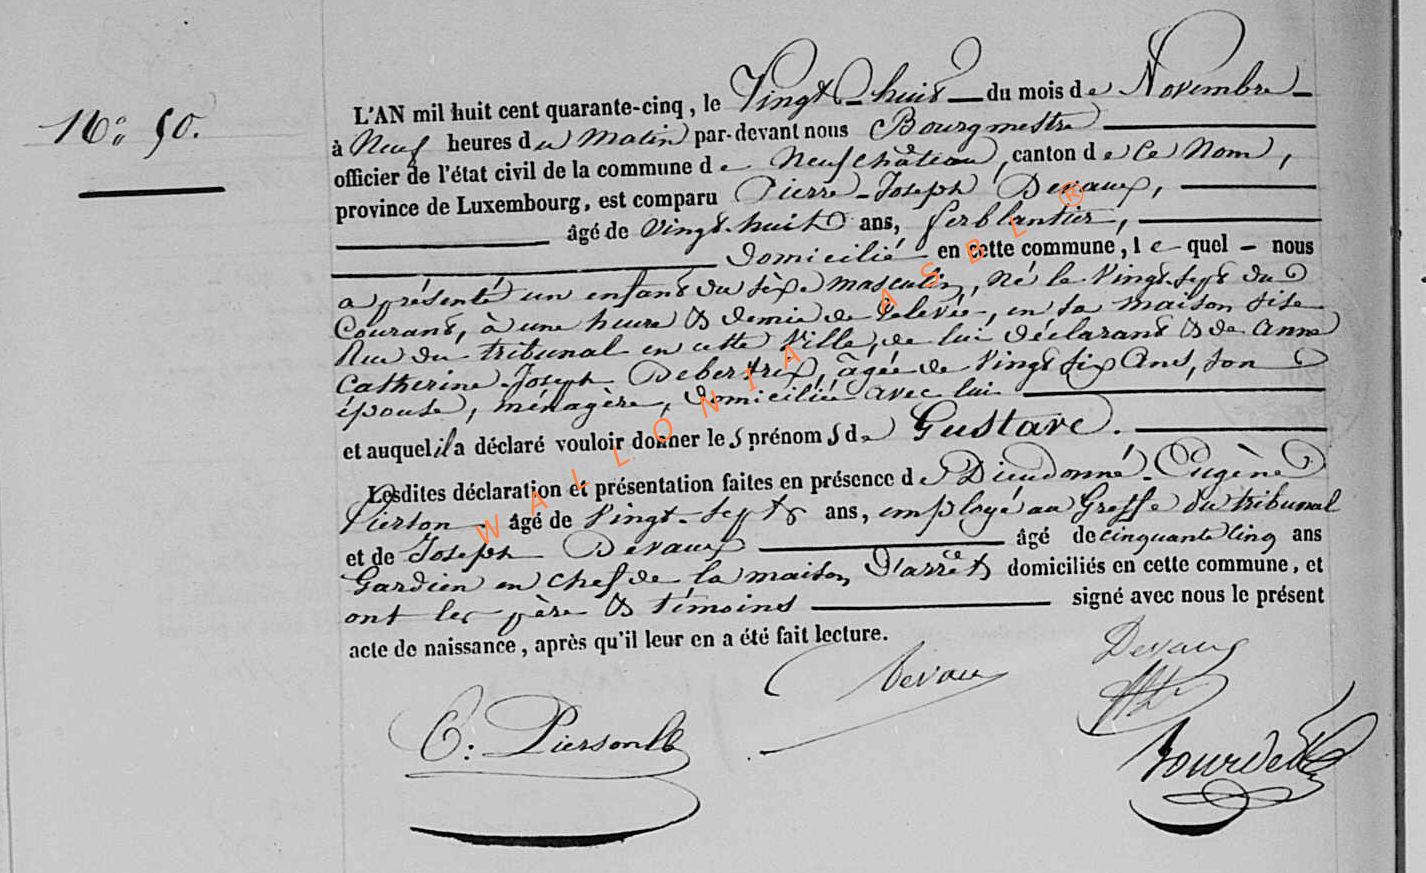 N.o 50.
L'AN mil huit cent quarante-cinq, le Vingt-huit du mois de Novembre
à Neuf heures du matin par-devant nous Bourgmestre
officier de l'état civil de la commune de Neufchâteau, canton de ce Nom,
province de Luxembourg, est comparu Pierre-Joseph Devaux,
âgé de vingt-huit ans, ferblantier,
Domicilié en cette commune, lequel nous
a présenté un enfant du sèxe masculin, né le vingt-sept du
Courant, à une heure & demie de relevée, en sa maison sise
Rue du tribunal en cette Ville, de lui déclarant & de Anne
Catherine-Joseph âgée de vingt six Ans, son
épouse, ménagère, domiciliée avec lui
et auquel il a déclaré vouloir donner les prénoms de Gustave.
Lesdites déclaration et présentation faites en présence de Dieudonné-Eugène
Pierson âgé de Vingt-sept ans, employé au Greffe du tribunal
et de Joseph Devaux âgé de cinquante cinq ans
Gardien en chef de la maison D'arrêt domiciliés en cette commune, et
ont les père & témoins signé avec nous le présent
acte de naissance, après qu'il leur en a été fait lecture.
Devaux
Devaux
E. Pierson
WALLONIA ASBL ®